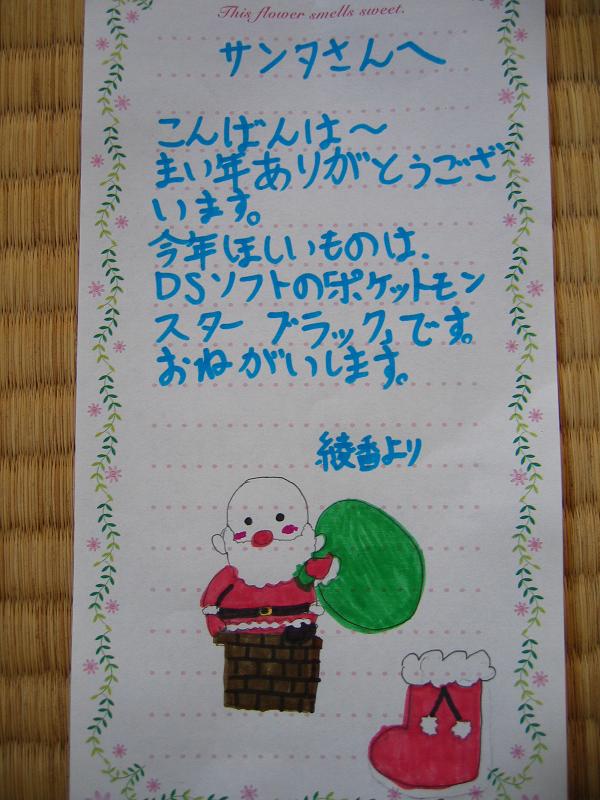 This flower smells sweet.
サンタさんへ
こんばんは～
まい年ありがとうござ
います。
今年ほしいものは、
DSソフトの「ポケットモン
スター ブラック」です。
おねがいします。
綾香より